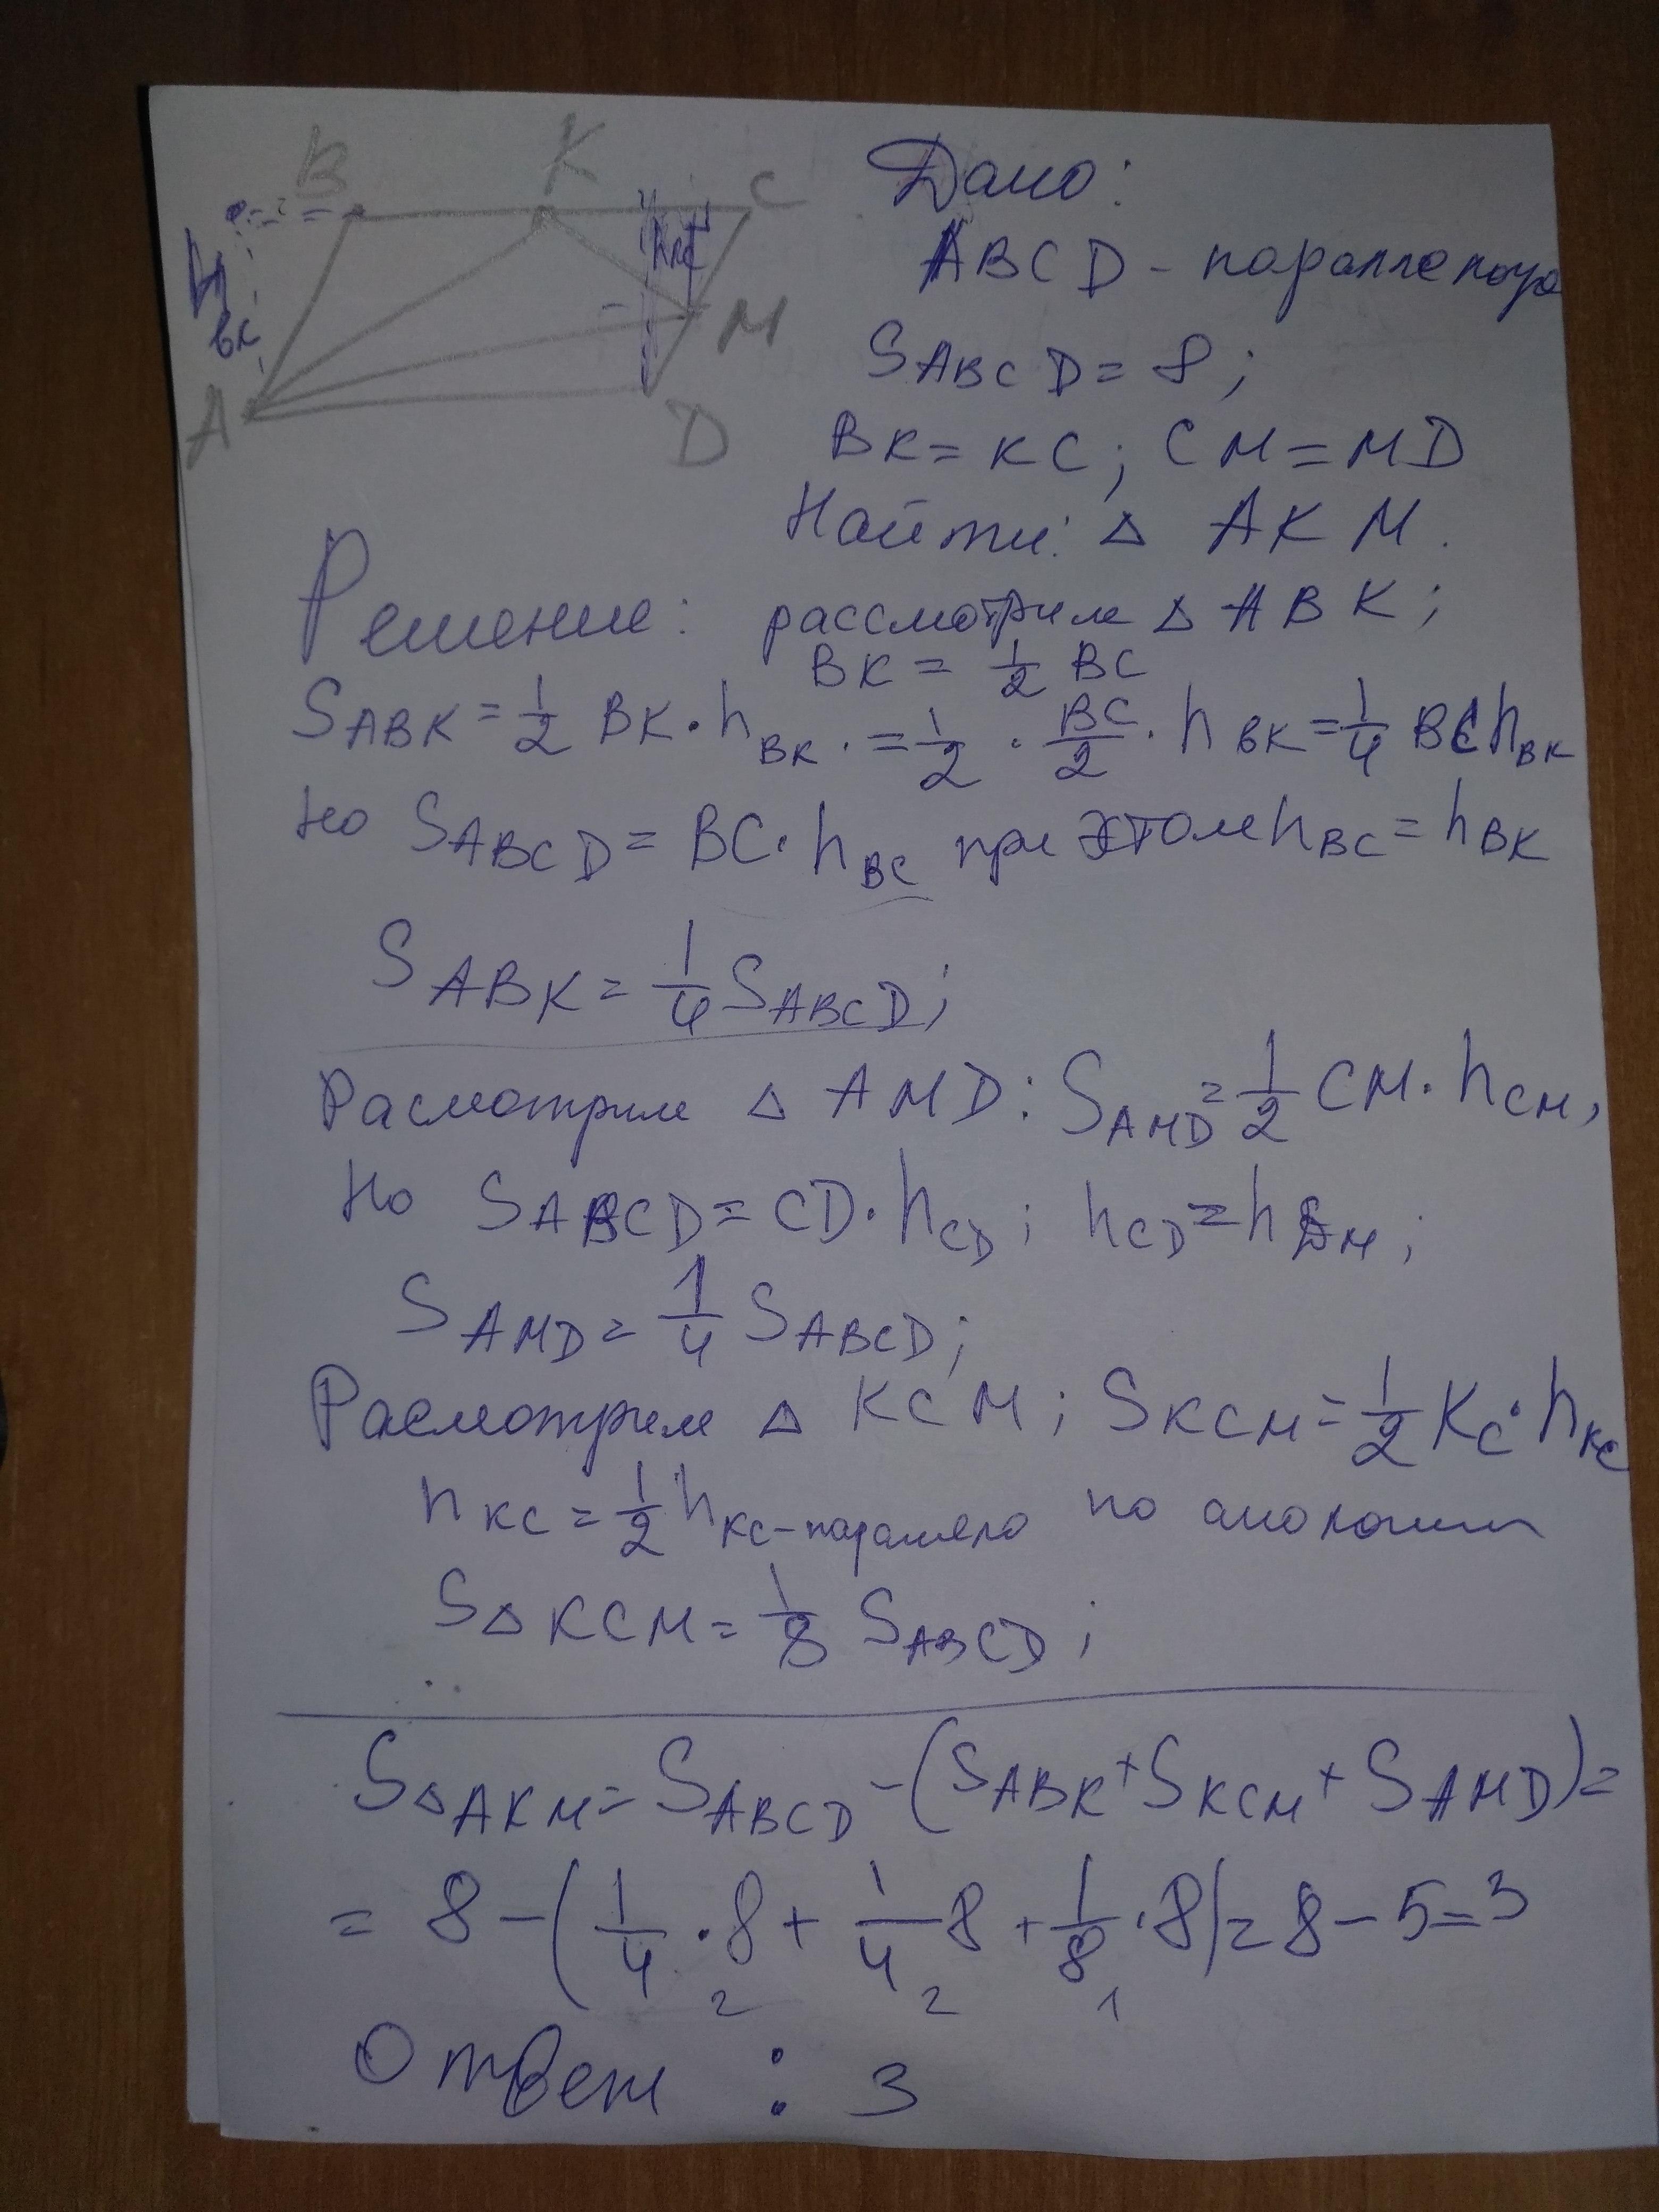 B K C
h
вк
hкс
M
A
D
Дано:
ABCD - параллелогр
SABCD = 8;
BK = KC; CM = MD
Найти: △ AKM.
Решение: рассмотрим △ ABK;
BK = 1/2 BC
SABK = 1/2 BK · hBK · = 1/2 · BC/2 · hBK = 1/4 BC hBK
Но SABCD = BC · hBC при этом hBC = hBK
SABK = 1/4 SABCD;
Расмотрим △ AMD: SAMD = 1/2 CM · hCM,
Но SABCD = CD · hCD; hCD = hDM;
SAMD = 1/4 SABCD;
Расмотрим △ KCM; SKCM = 1/2 KC · hKC
hKC = 1/2 hKC-паралело по
S△KCM = 1/8 SABCD;
S△AKM = SABCD - (SABK + SKCM + SAMD) =
= 8 - (1/4 · 8 + 1/4 8 + 1/8 · 8) = 8 - 5 = 3
2 2 1
Ответ : 3